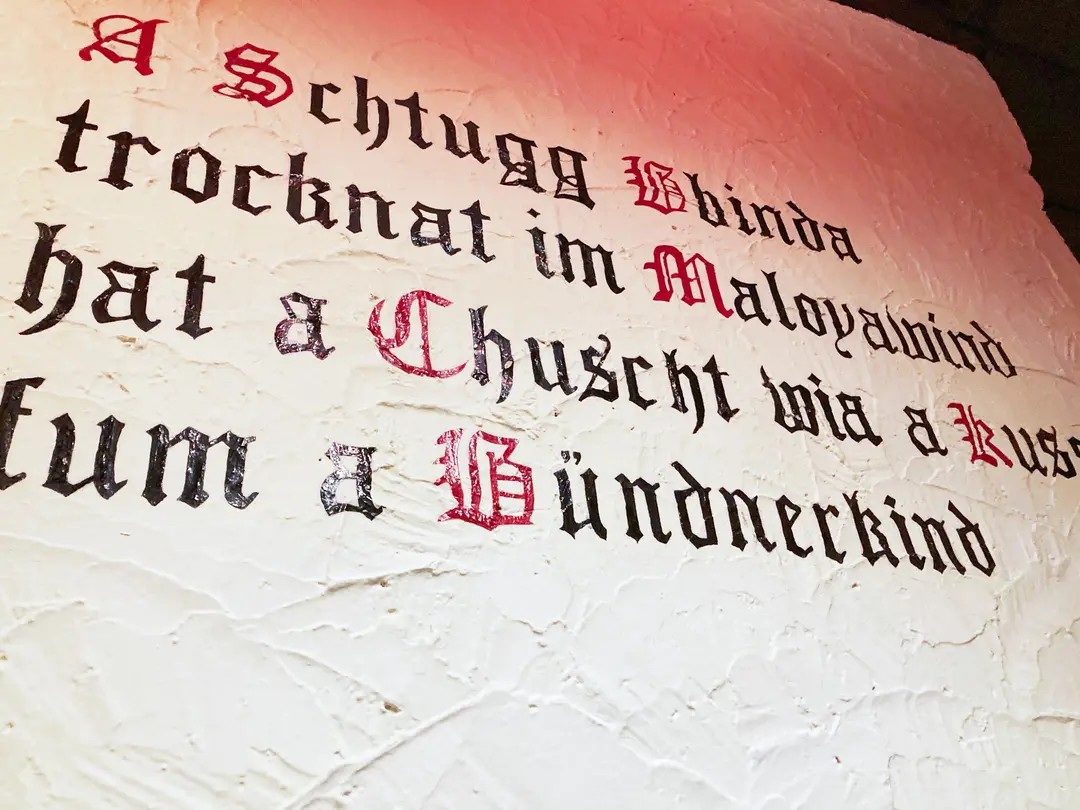 A Schtugg Bbinda
trocknat im Maloyawind
hat a Chuscht wia a Kuss
fum a Bündnerkind